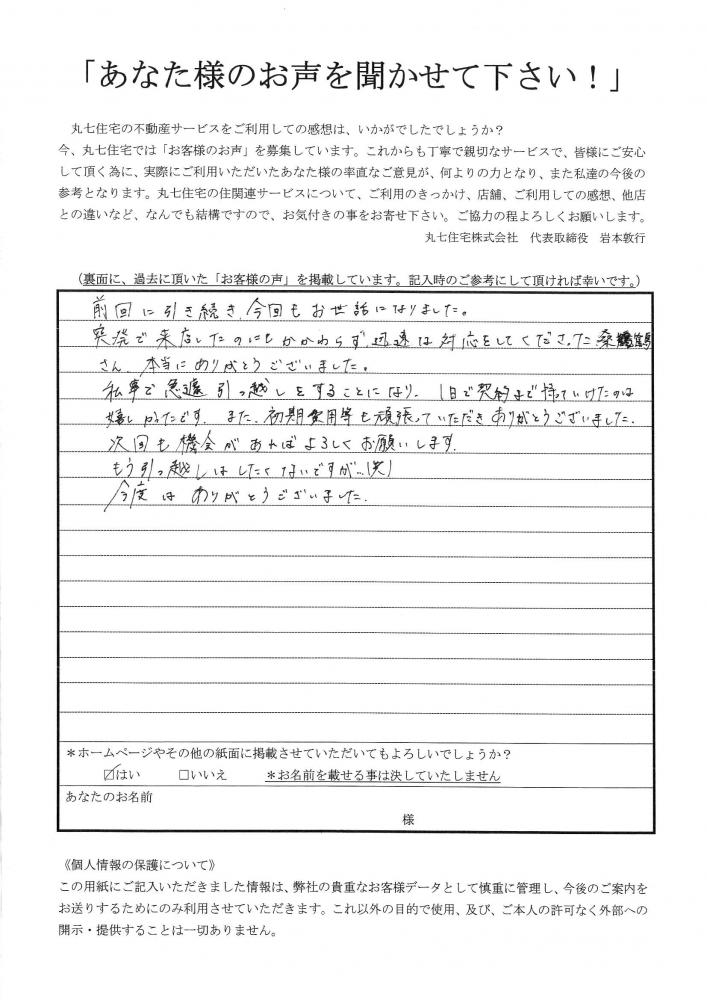 「あなた様のお声を聞かせて下さい！」
丸七住宅の不動産サービスをご利用しての感想は、いかがでしたでしょうか？
今、丸七住宅では「お客様のお声」を募集しています。これからも丁寧で親切なサービスで、皆様にご安心
して頂く為に、実際にご利用いただいたあなた様の率直なご意見が、何よりの力となり、また私達の今後の
参考となります。丸七住宅の住関連サービスについて、ご利用のきっかけ、店舗、ご利用しての感想、他店
との違いなど、なんでも結構ですので、お気付きの事をお寄せ下さい。ご協力の程よろしくお願いします。
丸七住宅株式会社　代表取締役　岩本敦行
（裏面に、過去に頂いた「お客様の声」を掲載しています。記入時のご参考にして頂ければ幸いです。）
前回に引き続き、今回もお世話になりました。
突発で来店したのにもかかわらず、迅速な対応をしてくださった桑
さん、本当にありがとうございました。
私事で急遽引っ越しをすることになり、1日で契約まで持っていけたのは
嬉しかったです。また、初期費用等も頑張っていただきありがとうございました。
次回も機会があればよろしくお願いします。
もう引っ越しはしたくないですが…(笑)
今度はありがとうございました。
＊ホームページやその他の紙面に掲載させていただいてもよろしいでしょうか？
☑はい　□いいえ　＊お名前を載せる事は決していたしません
あなたのお名前
様
《個人情報の保護について》
この用紙にご記入いただきました情報は、弊社の貴重なお客様データとして慎重に管理し、今後のご案内を
お送りするためにのみ利用させていただきます。これ以外の目的で使用、及び、ご本人の許可なく外部への
開示・提供することは一切ありません。